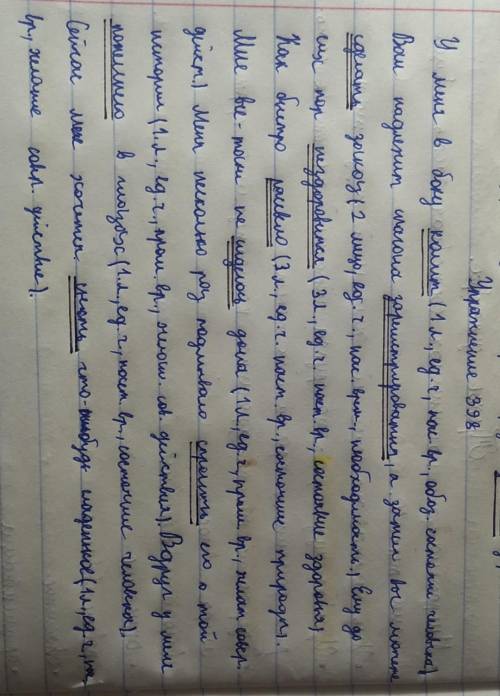 Упражнение 398
У меня в боку колит (1 л., ед.ч, нас. вр., обоз. состояни человека)
Вам надлежит сначала зарегистрироваться, а затем вы можете
сделать заказ (2 лицо, ед.ч, нас. врем, необходимость.) Ему до
сих пор нездоровится (3 л., ед.ч, наст. вр., состояние здоровья)
Как быстро (3 л., ед.ч. наст. вр., состояние природы).
Мне все-таки не сиделось дома (1 л, ед.ч, прош. вр.,
действ.) Меня несколько раз подмывало спросить его о той
истории (1 л., ед.ч, прош. вр., действия). Вдруг у меня
потемнело в глазах (1 л, ед.ч, наст. вр., состояние человека).
Сейчас мне хочется что-нибудь сладенькое (1 л, ед.ч, нас
вр., желание сов. действие).